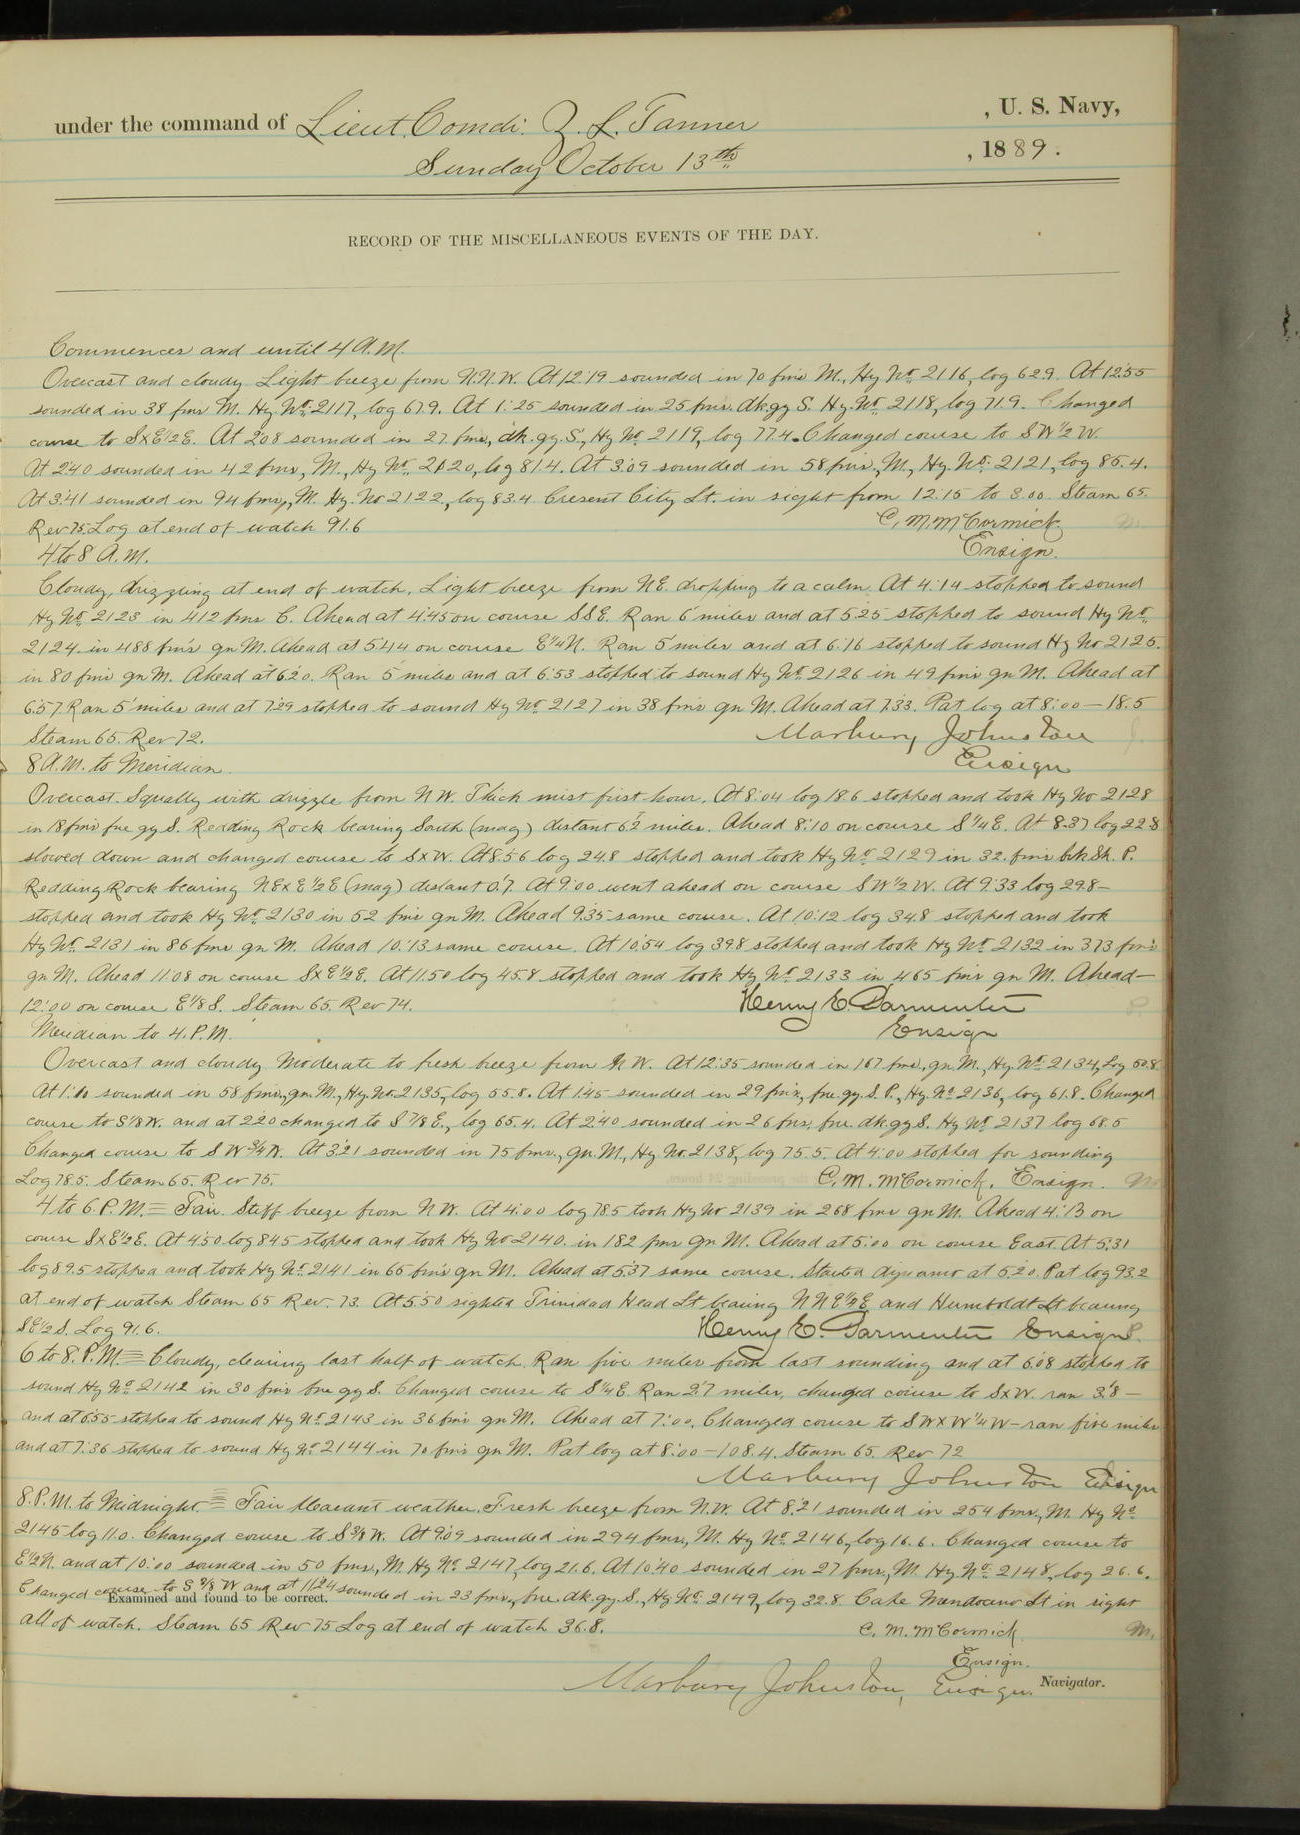 under the command of Lieut. Comdr. Z. L. Tanner , U. S. Navy,
Sunday October 13th , 1889.
RECORD OF THE MISCELLANEOUS EVENTS OF THE DAY.
Commences and until 4 A.M.
Overcast and cloudy Light breeze from N.N.W. At 12:19 sounded in 70 fms M., Hy No. 2116, log 62.9. At 12:55
sounded in 38 fms M. Hy. No. 2117, log 67.9. At 1:25 sounded in 25 fms. dk.gy S. Hy. No. 2118, log 71.9. Changed
course to SxE½E. At 2:08 sounded in 27 fms, dk.gy.S., Hy No. 2119, log 77.4. Changed course to SW½W.
At 2:40 sounded in 42 fms, M., Hy No. 2120, log 81.4. At 3:09 sounded in 58 fms, M., Hy. No. 2121, log 85.4.
At 3:41 sounded in 94 fms, M. Hy. No 2122, log 83.4 Cresent City Lt. in sight from 12:15 to 3.00. Steam 65.
Rev 75. Log at end of watch 91.6 C. M. McCormick
4 to 8 A.M. Ensign.
Cloudy, drizzling at end of watch. Light breeze from NE. dropping to a calm. At 4:14 stopped to sound
Hy No. 2123 in 412 fms C. Ahead at 4:45 on course SSE. Ran 6 miles and at 5:25 stopped to sound Hy No.
2124 in 488 fms gn M. Ahead at 5:44 on course E¼N. Ran 5 miles and at 6:16 stopped to sound Hy No 2125.
in 80 fms gn M. Ahead at 6:20. Ran 5 miles and at 6:53 stopped to sound Hy No. 2126 in 49 fms gn M. Ahead at
6:57 Ran 5 miles and at 7:29 stopped to sound Hy No. 2127 in 38 fms gn M. Ahead at 7:33. Pat log at 8:00 — 18.5
Steam 65. Rev 72. Marbury Johnston
8 A.M. to Meridian. Ensign
Overcast. Squally with drizzle from NW. Thick mist first hour. At 8:04 log 18.6 stopped and took Hy No 2128
in 18 fms fne gy S. Redding Rock bearing South (mag) distant 6½ miles. Ahead 8:10 on course S¼E. At 8:37 log 22.8
slowed down and changed course to SxW. At 8:56 log 24.8 stopped and took Hy No. 2129 in 32. fms brk Sh. P.
Redding Rock bearing NExE½E (mag) distant 0.7. At 9:00 went ahead on course SW½W. At 9:33 log 29.8 —
stopped and took Hy No. 2130 in 52 fms gn M. Ahead 9:35 same course. At 10:12 log 34.8 stopped and took
Hy No. 2131 in 86 fms gn M. Ahead 10:13 same course. At 10:54 log 39.8 stopped and took Hy No. 2132 in 373 fms
gn M. Ahead 11:08 on course SxE½E. At 11:50 log 45.8 stopped and took Hy No. 2133 in 465 fms gn M. Ahead —
12:00 on course E⅛S. Steam 65. Rev 74. Henry E. Parmenter
Meridian to 4. P.M. Ensign
Overcast and cloudy Moderate to fresh breeze from NW. At 12:35 sounded in 167 fms, gn M., Hy No. 2134, Log 50.8.
At 1:10 sounded in 58 fms, gn. M., Hy. No. 2135, log 55.8. At 1:45 sounded in 29 fms, fne. gy. S. P., Hy No. 2136, log 61.8. Changed
course to S⅛W. and at 2:20 changed to S⅞E., log 65.4. At 2:40 sounded in 26 fms, fne. dk.gy S. Hy No. 2137 log 68.5
Changed course to SW¾W. At 3:21 sounded in 75 fms., gn. M., Hy No. 2138, log 75.5. At 4:00 stopped for sounding
Log 78.5. Steam 65. Rev 75. C. M. McCormick, Ensign.
4 to 6. P.M. = Fair. Stiff breeze from NW. At 4:00 log 78.5 took Hy No 2139 in 268 fms gn M. Ahead 4:13 on
course SxE½E. At 4:50 log 84.5 stopped and took Hy No 2140. in 182 fms gn M. Ahead at 5:00 on course East. At 5:31
log 89.5 stopped and took Hy No. 2141 in 65 fms gn M. Ahead at 5:37 same course. Started dynamo at 5:20. Pat log 93.2
at end of watch Steam 65 Rev. 73. At 5:50 sighted Trinidad Head Lt bearing NNE¼E and Humboldt Lt bearing
SE½S. Log 91.6. Henry E. Parmenter Ensign
6 to 8. P.M. = Cloudy, clearing last half of watch. Ran five miles from last sounding and at 6:08 stopped to
sound Hy No. 2142 in 30 fms fne gy S. Changed course to S¼E. Ran 2.7 miles, changed course to SxW. ran 3.8 —
and at 6:55 stopped to sound Hy No. 2143 in 36 fms gn M. Ahead at 7:00. Changed course to SWxW¼W — ran five miles
and at 7:36 stopped to sound Hy No. 2144 in 70 fms gn M. Pat log at 8:00 — 108.4. Steam 65. Rev 72
Marbury Johnston Ensign
8. P.M. to Midnight = Fair pleasant weather. Fresh breeze from N.W. At 8:21 sounded in 254 fms, M. Hy No.
2145 log 11.0. Changed course to S⅜W. At 9:09 sounded in 294 fms, M. Hy No. 2146, log 16.6. Changed course to
E½N. and at 10:00 sounded in 50 fms, M. Hy No. 2147, log 21.6. At 10:40 sounded in 27 fms, M. Hy No. 2148, log 26.6.
Changed course to S⅜W and at 11:24 sounded in 23 fms, fne. dk.gy.S., Hy No. 2149, log 32.8. Cape Mendocino Lt in sight
Examined and found to be correct.
all of watch. Steam 65 Rev 75 Log at end of watch 36.8. C. M. McCormick
Ensign.
Marbury Johnston, Ensign. Navigator.